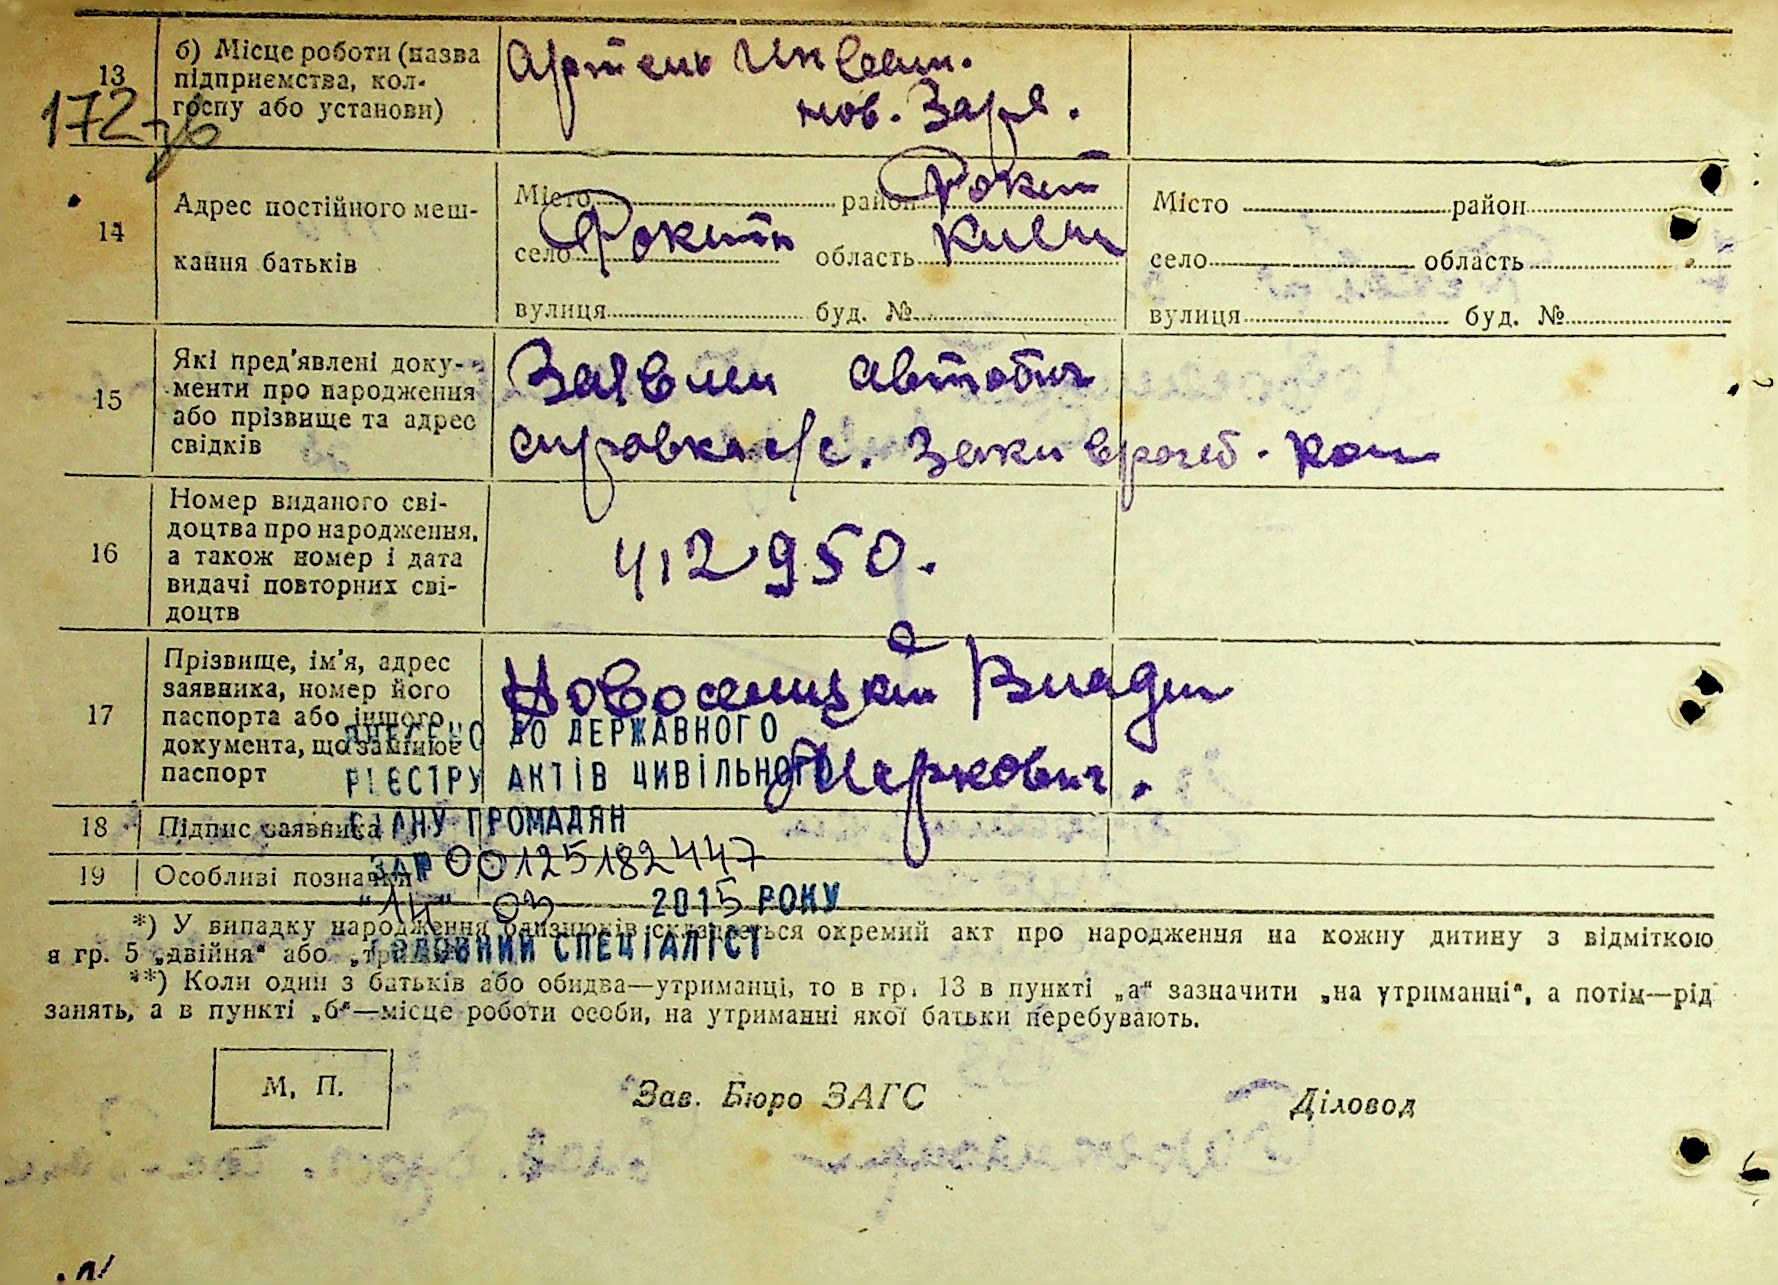 13
б) Місце роботи (назва
підприємства, кол-
госпу або установи)
Артель Инвал.
нов. Заря.
172
14
Адрес постійного меш-
кання батьків
Місто район Рокит
село Рокитн область Киев
вулиця буд. №
Місто район
село область
вулиця буд. №
15
Які пред'явлені доку-
менти про народження
або прізвище та адрес
свідків
Заявлен
справка
16
Номер виданого сві-
доцтва про народження,
а також номер і дата
видачі повторних сві-
доцтв
412950.
17
Прізвище, ім'я, адрес
заявника, номер його
паспорта або іншого
документа, що замінює
паспорт
Новоселицкий Влади
Меркович.
ВНЕСЕНО ДО ДЕРЖАВНОГО
РЕЄСТРУ АКТІВ ЦИВІЛЬНОГО
СТАНУ ГРОМАДЯН
ЗА № 001251182447
"14" 03 2015 РОКУ
ГОЛОВНИЙ СПЕЦІАЛІСТ
18 Підпис заявника
19 Особливі познавки
*) У випадку народження близнюків складається окремий акт про народження на кожну дитину з відміткою
в гр. 5 „двійня" або „трійня"
**) Коли один з батьків або обидва—утриманці, то в гр. 13 в пункті „а" зазначити „на утриманці", а потім—рід
занять, а в пункті „б"—місце роботи особи, на утриманні якої батьки перебувають.
М. П.
Зав. Бюро ЗАГС
Діловод